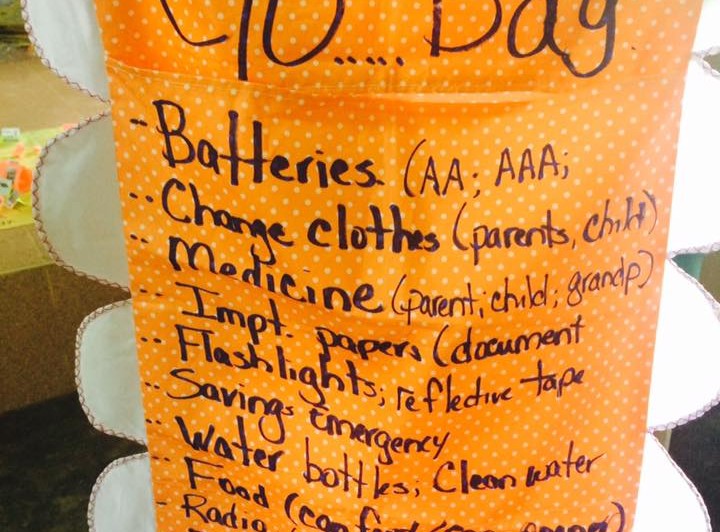 ..... Bag
- Batteries (AA; AAA;
-- Change clothes (parents, child)
-- Medicine (parent; child; grandp)
-- Impt. papers (document
-- Flashlights; reflective tape
-- Savings Emergency
-- Water bottles; Clean water
-- Food (can food
- Radio